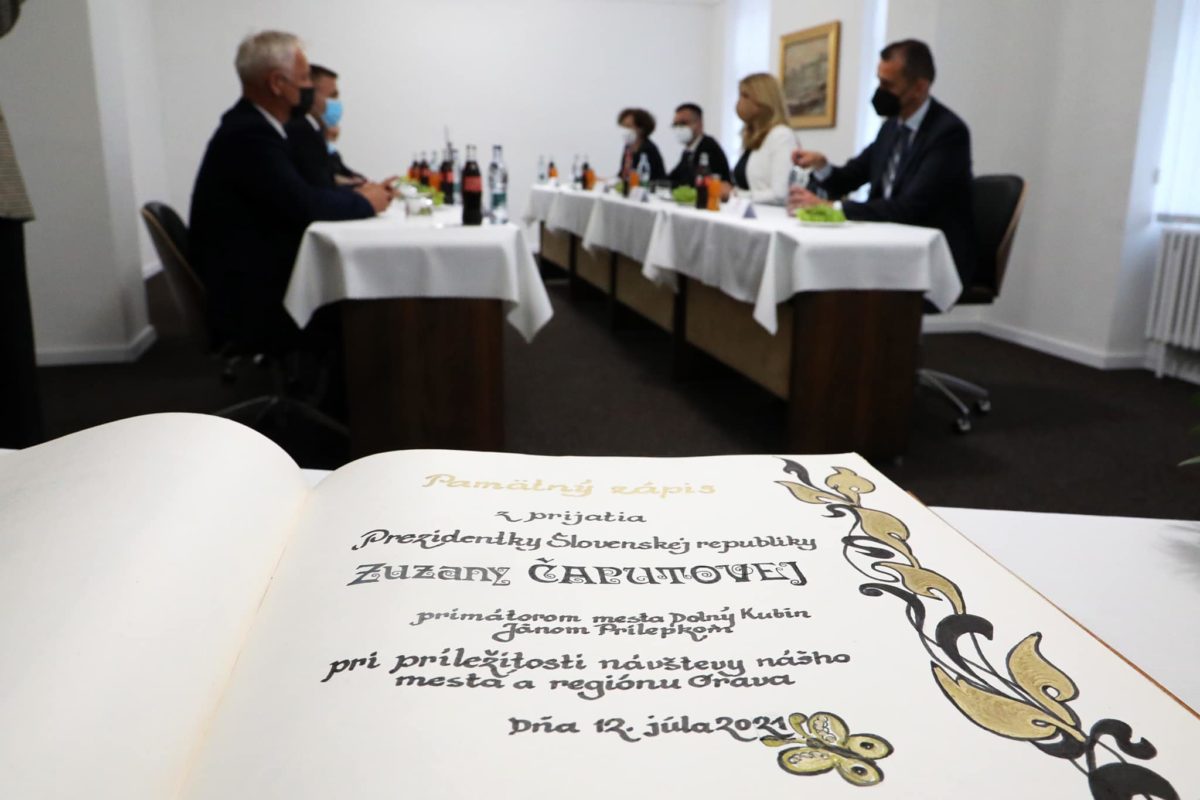 Pamätný zápis
z prijatia
Prezidentky Slovenskej republiky
Zuzany ČAPUTOVEJ
primátorom mesta Dolný Kubín
Jánom Prílepkom
pri príležitosti návštevy nášho
mesta a regiónu Orava
Dňa 12. júla 2021